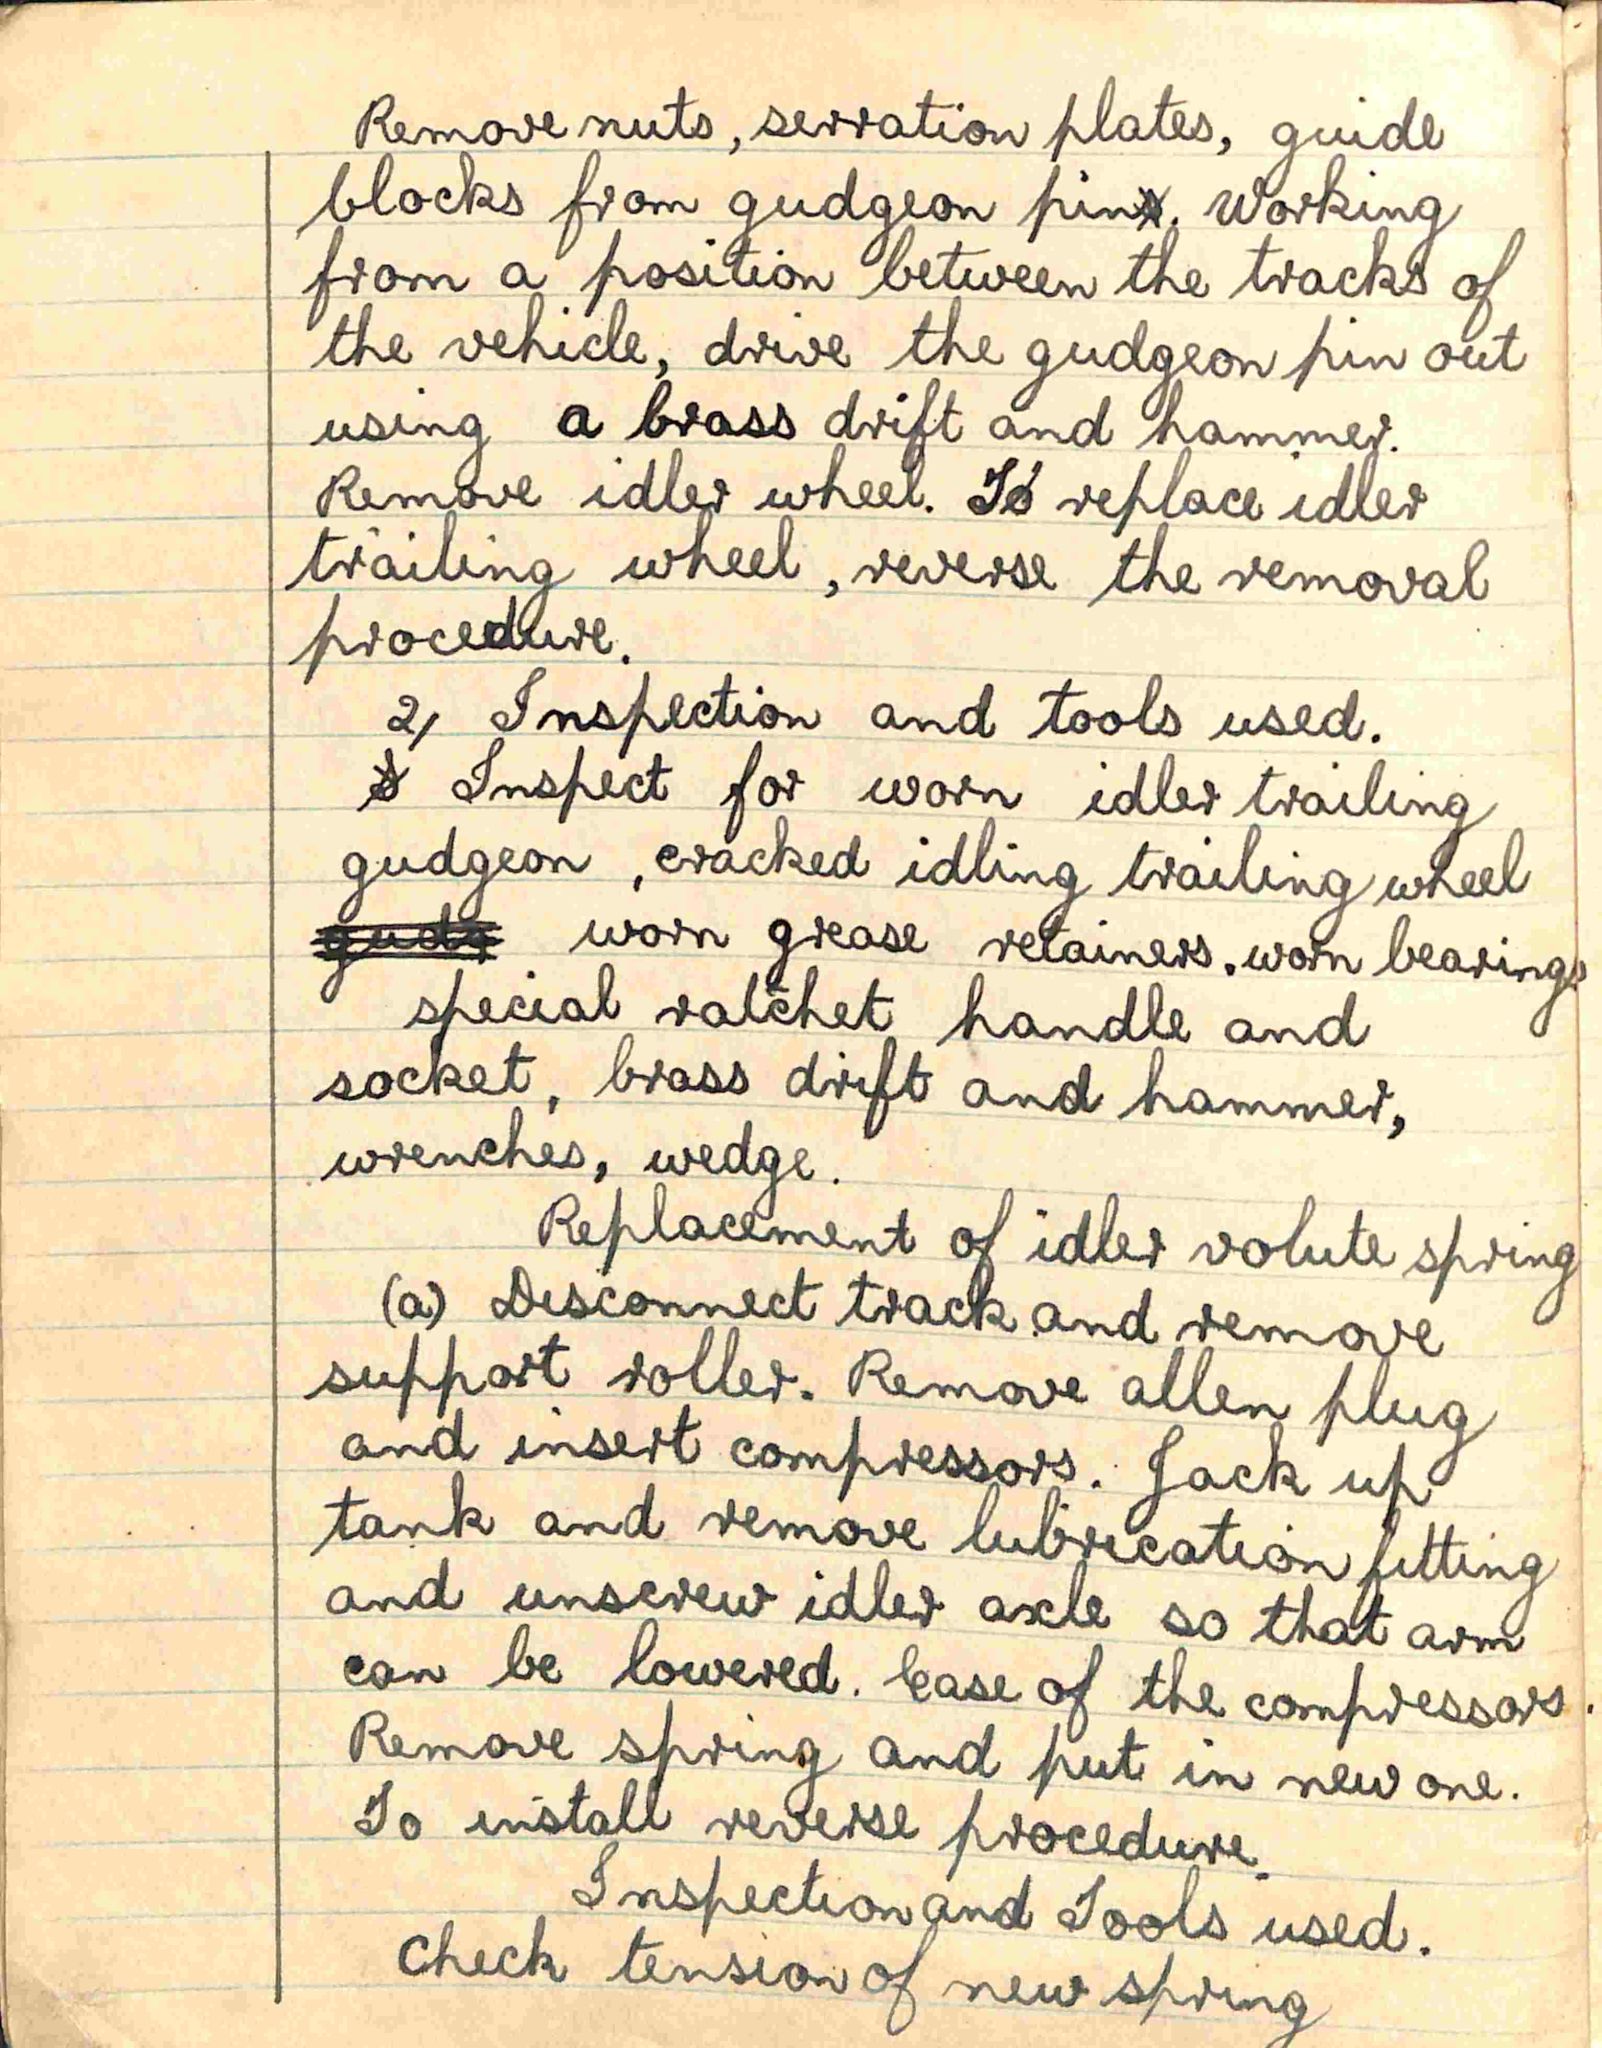 Remove nuts, serration plates, guide
blocks from gudgeon pin. Working
from a position between the tracks of
the vehicle, drive the gudgeon pin out
using a brass drift and hammer.
Remove idler wheel. To replace idler
trailing wheel, reverse the removal
procedure.
2, Inspection and tools used.
Inspect for worn idler trailing
gudgeon, cracked idling trailing wheel
worn grease retainers. worn bearings
special ratchet handle and
socket, brass drift and hammer,
wrenches, wedge.
Replacement of idler volute spring
(a) Disconnect track and remove
support roller. Remove allen plug
and insert compressors. Jack up
tank and remove lubrication fitting
and unscrew idler axle so that arm
can be lowered. Ease of the compressors.
Remove spring and put in new one.
To install reverse procedure.
Inspection and Tools used.
Check tension of new spring